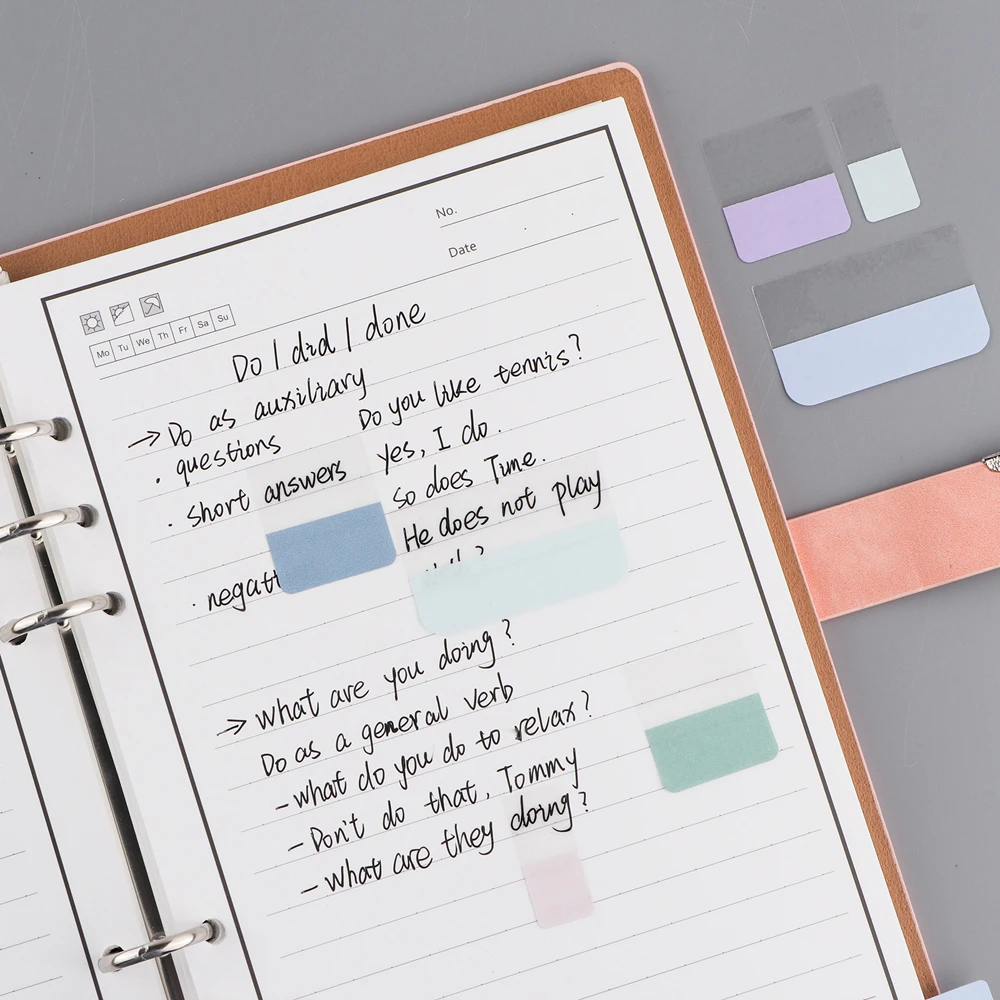 No.
Date
Mo Tu We Th Fr Sa Su
Do / did / done
→ Do as auxiliary
· questions Do you like tennis?
Yes, I do.
· short answers So does Time.
He does not play
· negati
→ What are you doing?
Do as a general verb
- what do you do to relax?
- Don't do that, Tommy
- what are they doing?